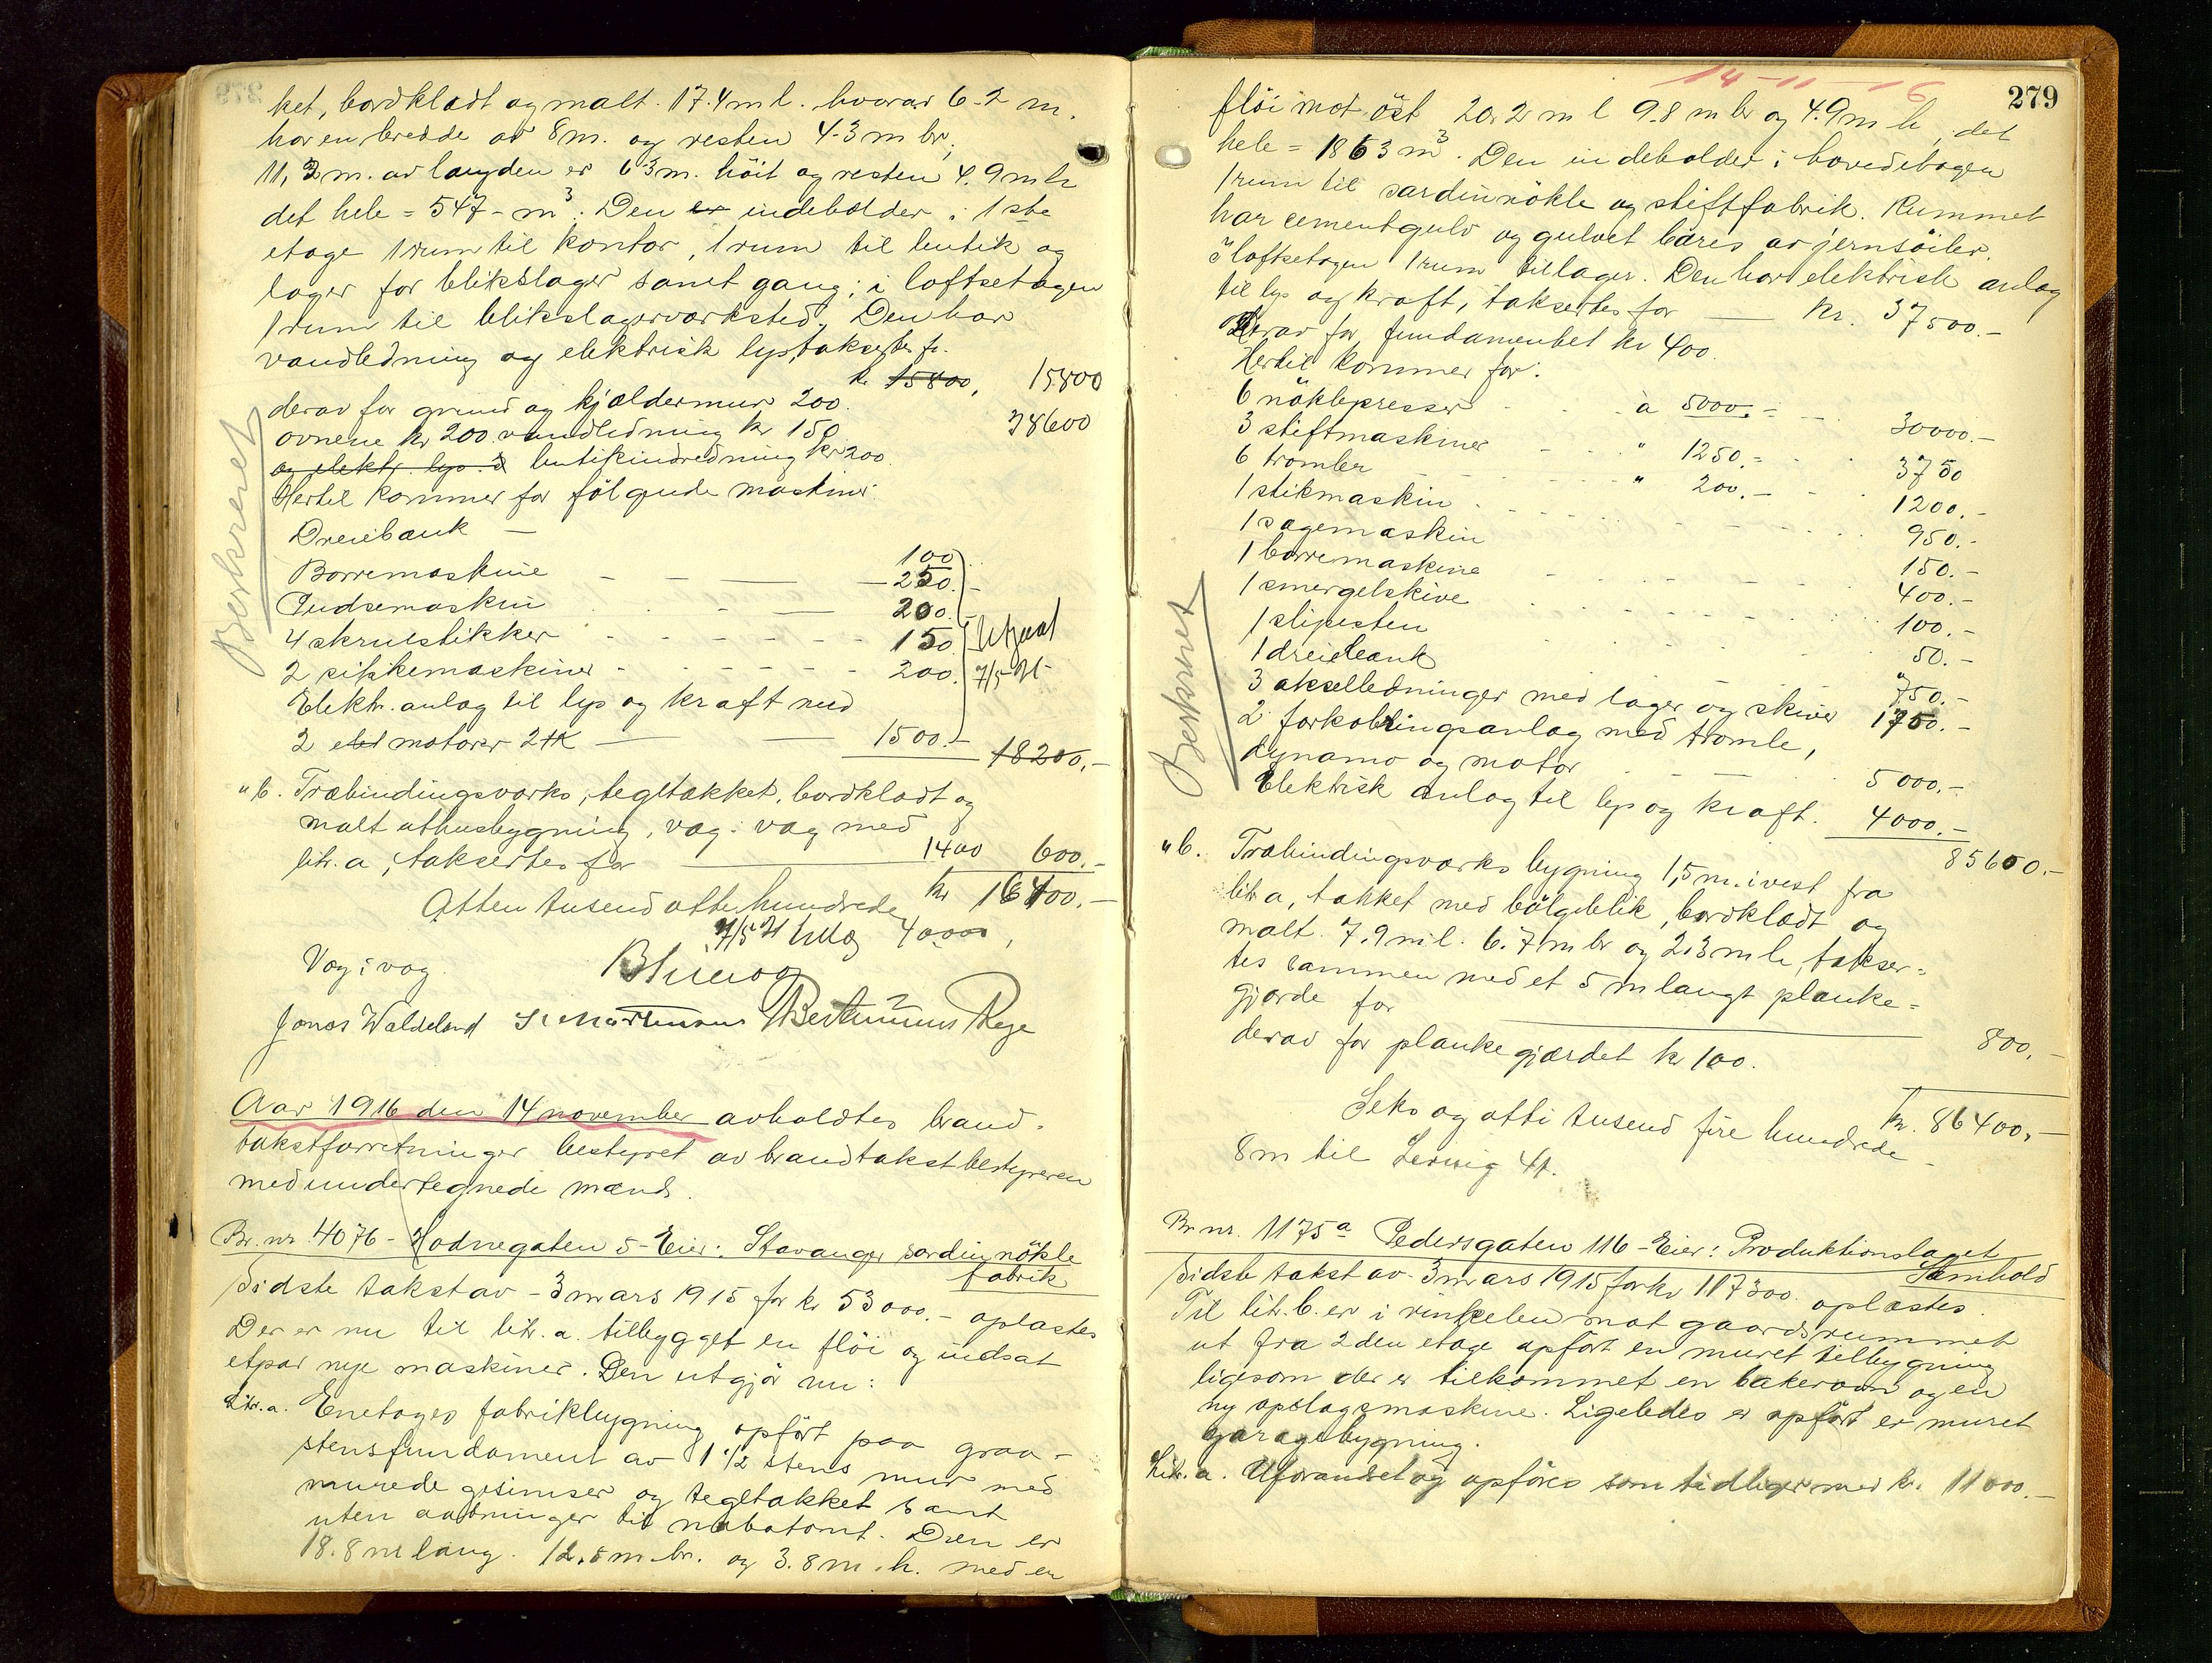 ket, bordklædt og malt. 17.4 m l. hvorav 6-2 m.
har en bredde av 8 m. og resten 4-3 m br,
11,3 m. av længden er 6-3 m. höit og resten 4.9 m h
det hele = 547 - m³. Den er indeholder i 1ste
etage 1 rum til kontor, 1 rum til butik og
lager for blikslager samt gang; i loftsetagen
1 rum til blikslagerværksted. Den har
vandledning og elektrisk lys, taksertes fr.
kr. 15800, 15800
derav for grund og kjældermur 200.
38600
ovnene kr 200. vandledning kr 150
og elektr. lys. butikindredning kr 200.
Hertil kommer for fölgende maskiner.
Dreiebænk — 100
Borremaskine - - — 250.-
Pudsemaskin — 200.
4 skruestikker - - - - 150.
2 sikkemaskiner - - - - 200.
Utgaat 7/5-21
Elektr. anlæg til lys og kraft med
2 elek motorer 2 HK — — 1500.- 18200.-
" b. Træbindingsværks, tegltækket, bordklædt og
malt uthusbygning, væg i væg med
litr. a, taksertes for — 1400 600.-
kr 16400.-
Atten tusend otte hundrede
7/5 21 40000,
Væg i væg.
Jonas Waldeland
Bertinius Rege
Berknet
Aar 1916 den 14 november avholdtes brand-
takstforretninger bestyret av brandtakstbestyreren
med undertegnede mænd.
Br. nr. 4076 - Hodnegaten 5 - Eier: Stavanger sardinnökle
fabrik
Sidste takst av - 3 mars 1915 for kr 53000.- oplæstes
Der er nu til litr. a. tilbygget en flöi og indsat
etpar nye maskiner. Den utgjör nu:
Litr. a. Enetages fabrikbygning opfört paa graa-
stensfundament av 1 1/2 stens mur med
murede gesimser og tegltækket samt
uten aabninger til nabotomt. Den er
18.8 m lang. 12.8 m. br. og 3.8 m. h. med en
14-11-16
279
flöi mot öst 20,2 m l 9.8 m br og 4.9 m h, det
hele = 1863 m³. Den indeholder i hovedetagen
1 rum til sardinnökle og stiftfabrik. Rummet
har cementgulv og gulvet bæres av jernsöiler.
I loftsetagen 1 rum til lager. Den har elektrisk anlæg
til lys og kraft, taksertes for — kr. 37500.-
Derav for fundamentet kr 400.
Hertil kommer for:
6 nöklepresser - - à 5000.- 30000.-
3 stiftmaskiner - - " 1250.- 3750
6 tromler - - " 200.- 1200.-
1 stikmaskin 950.-
1 sagemaskin 150.-
1 borremaskine 400.-
1 smergelskive 100.-
1 slipesten 50.-
1 dreiebænk 750.-
3 akselledninger med lager og skiver 1750.-
2 forkobringsanlæg med tromle,
dynamo og motor 5000.-
Elektrisk anlæg til lys og kraft. 4000.-
85600.-
Berknet
" b. Træbindingsværks bygning 1,5 m. i vest fra
litr a, tækket med bölgeblik, bordklædt og
malt. 7.9 m l. 6.7 m br og 2.3 m h, takser-
tes sammen med et 5 m langt planke-
gjærde for — 800.-
derav for plankegjærdet kr 100.
kr. 86400.-
Seks og otti tusend fire hundrede
8 m til Lervig 41.
Br nr. 1175 a Pedersgaten 116 - Eier: Produktionslaget
Samhold
Sidste takst av 3 mars 1915 for kr 117300. oplæstes.
Til litr. b. er i vinkelen mot gaardsrummet
ut fra 2den etage opfört en muret tilbygning
ligesom der er tilkommet en bakerovn og en
ny opslagsmaskine. Ligeledes er opfört en muret
garagebygning.
Litr. a. Uforandret og opföres som tidligere med kr. 11000.-